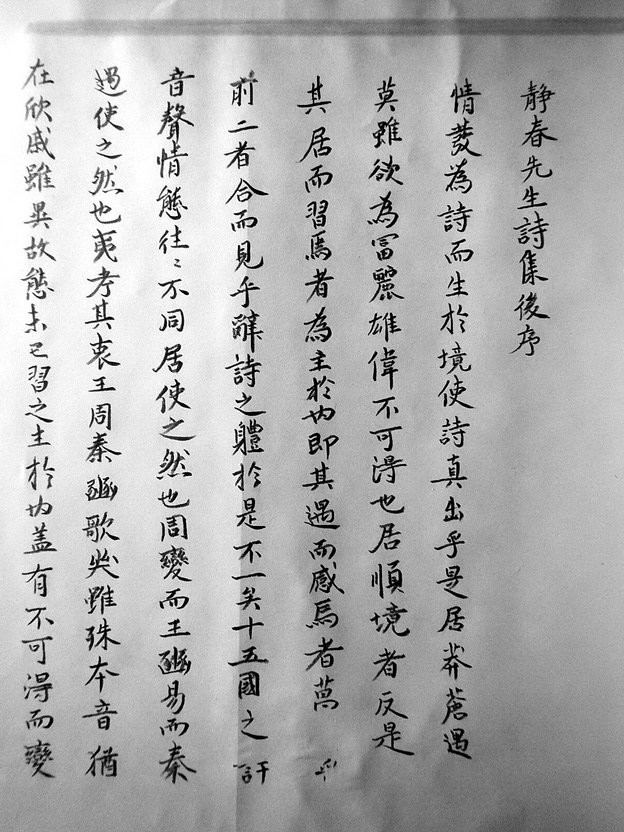 靜春先生詩集後序
情發為詩而生於境使詩真出乎是居莽蒼遇
莫雖欲為富麗雄偉不可得也居順境者反是
其居而習焉者為主於內即其遇而感焉者萬乎
前二者合而見乎辭詩之體於是不一矣十五國之
音聲情態往々不同居使之然也周變而王豳易而秦
遇使之然也夷考其衷王周秦豳歌
雖殊本音猶
在欣戚雖異故態未已習之主於內蓋有不可得而變